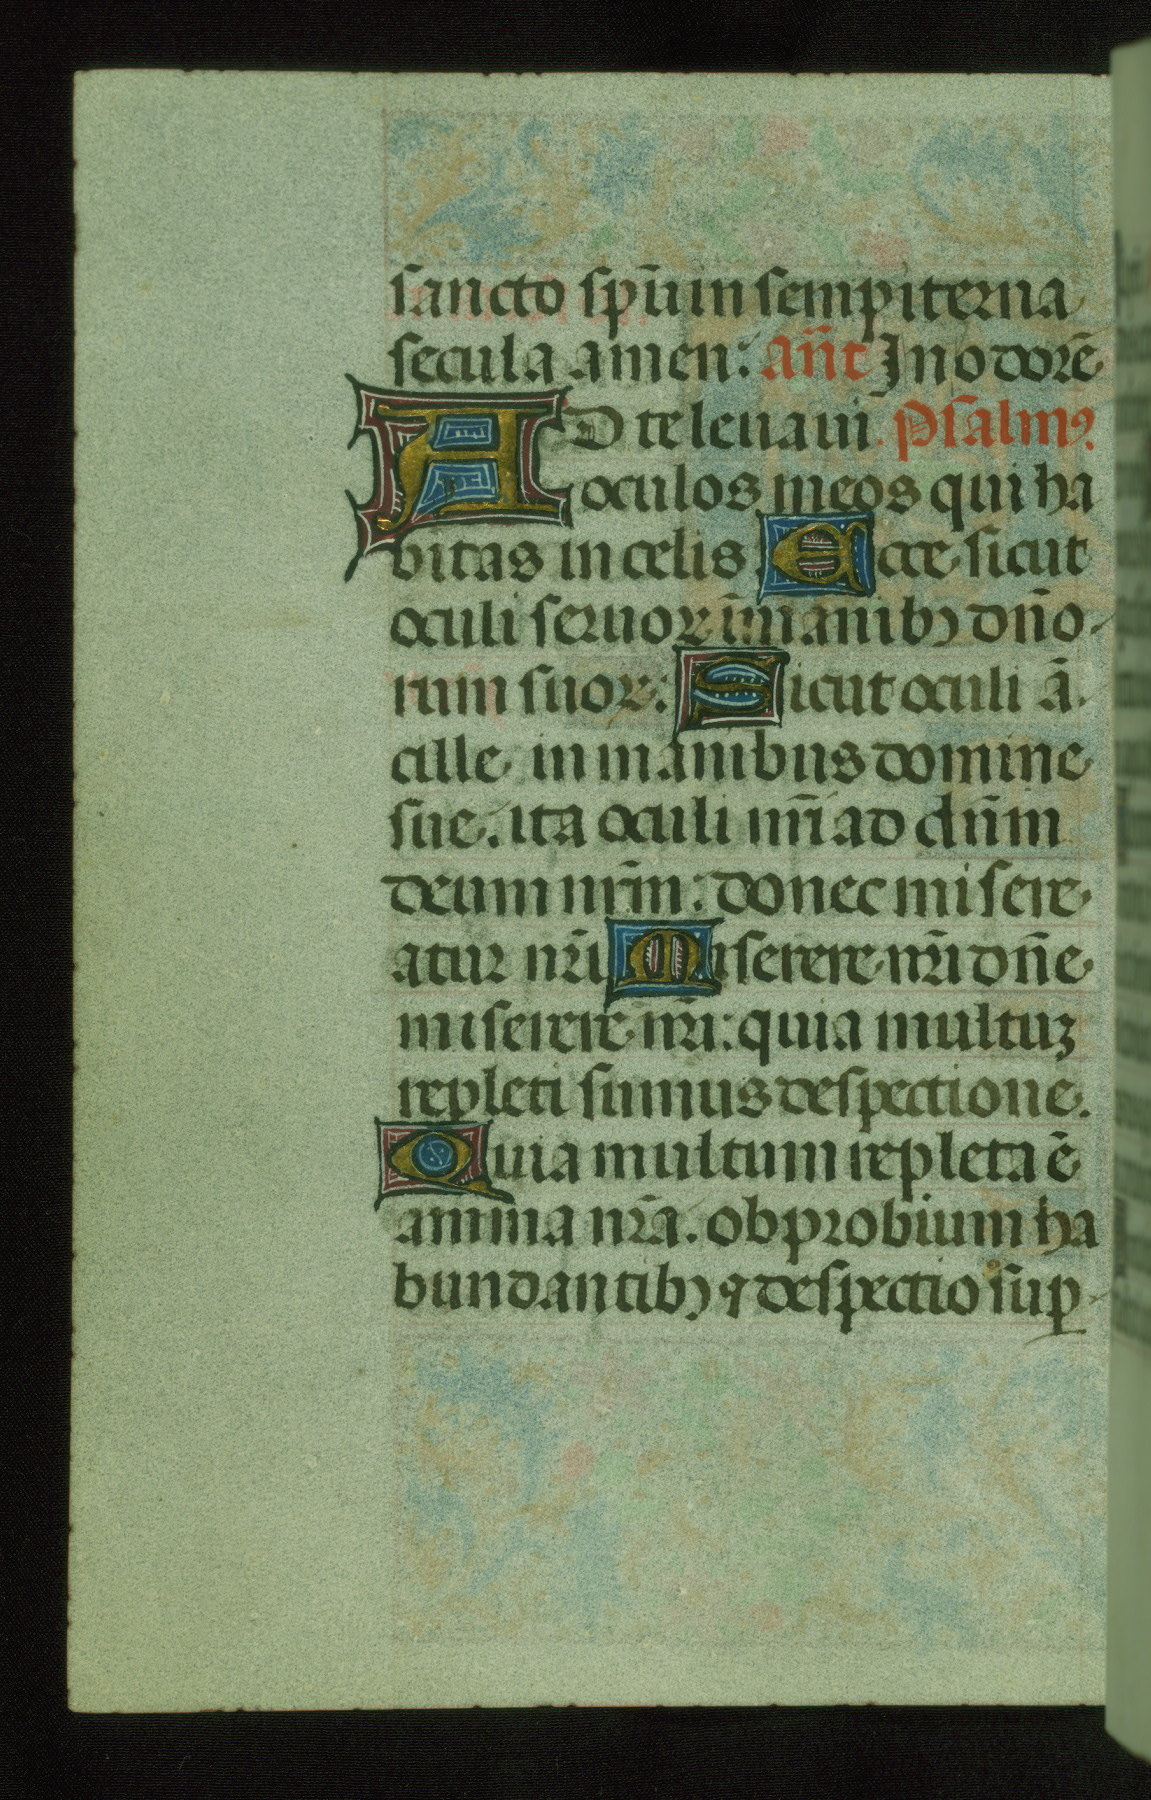 sancto spū in sempiterna
secula amen: an̄t Jn odorē
AD te leuaui Psalmꝰ.
oculos meos qui ha
bitas in celis Ecce sicut
oculi seruoꝝ ī manibꝫ dn̄o-
rum suoꝝ: Sicut oculi ā-
cille in manibus domine
sue. ita oculi nr̄i ad dn̄m
deum nr̄m: donec misere
atur nr̄i Miserere nr̄i dn̄e
miserere nr̄i: quia multuʒ
repleti sumus despectione.
Quia multum repleta ē
anima nr̄a. obprobium ha
bundantibꝫ ꝯ despectio suꝑ-